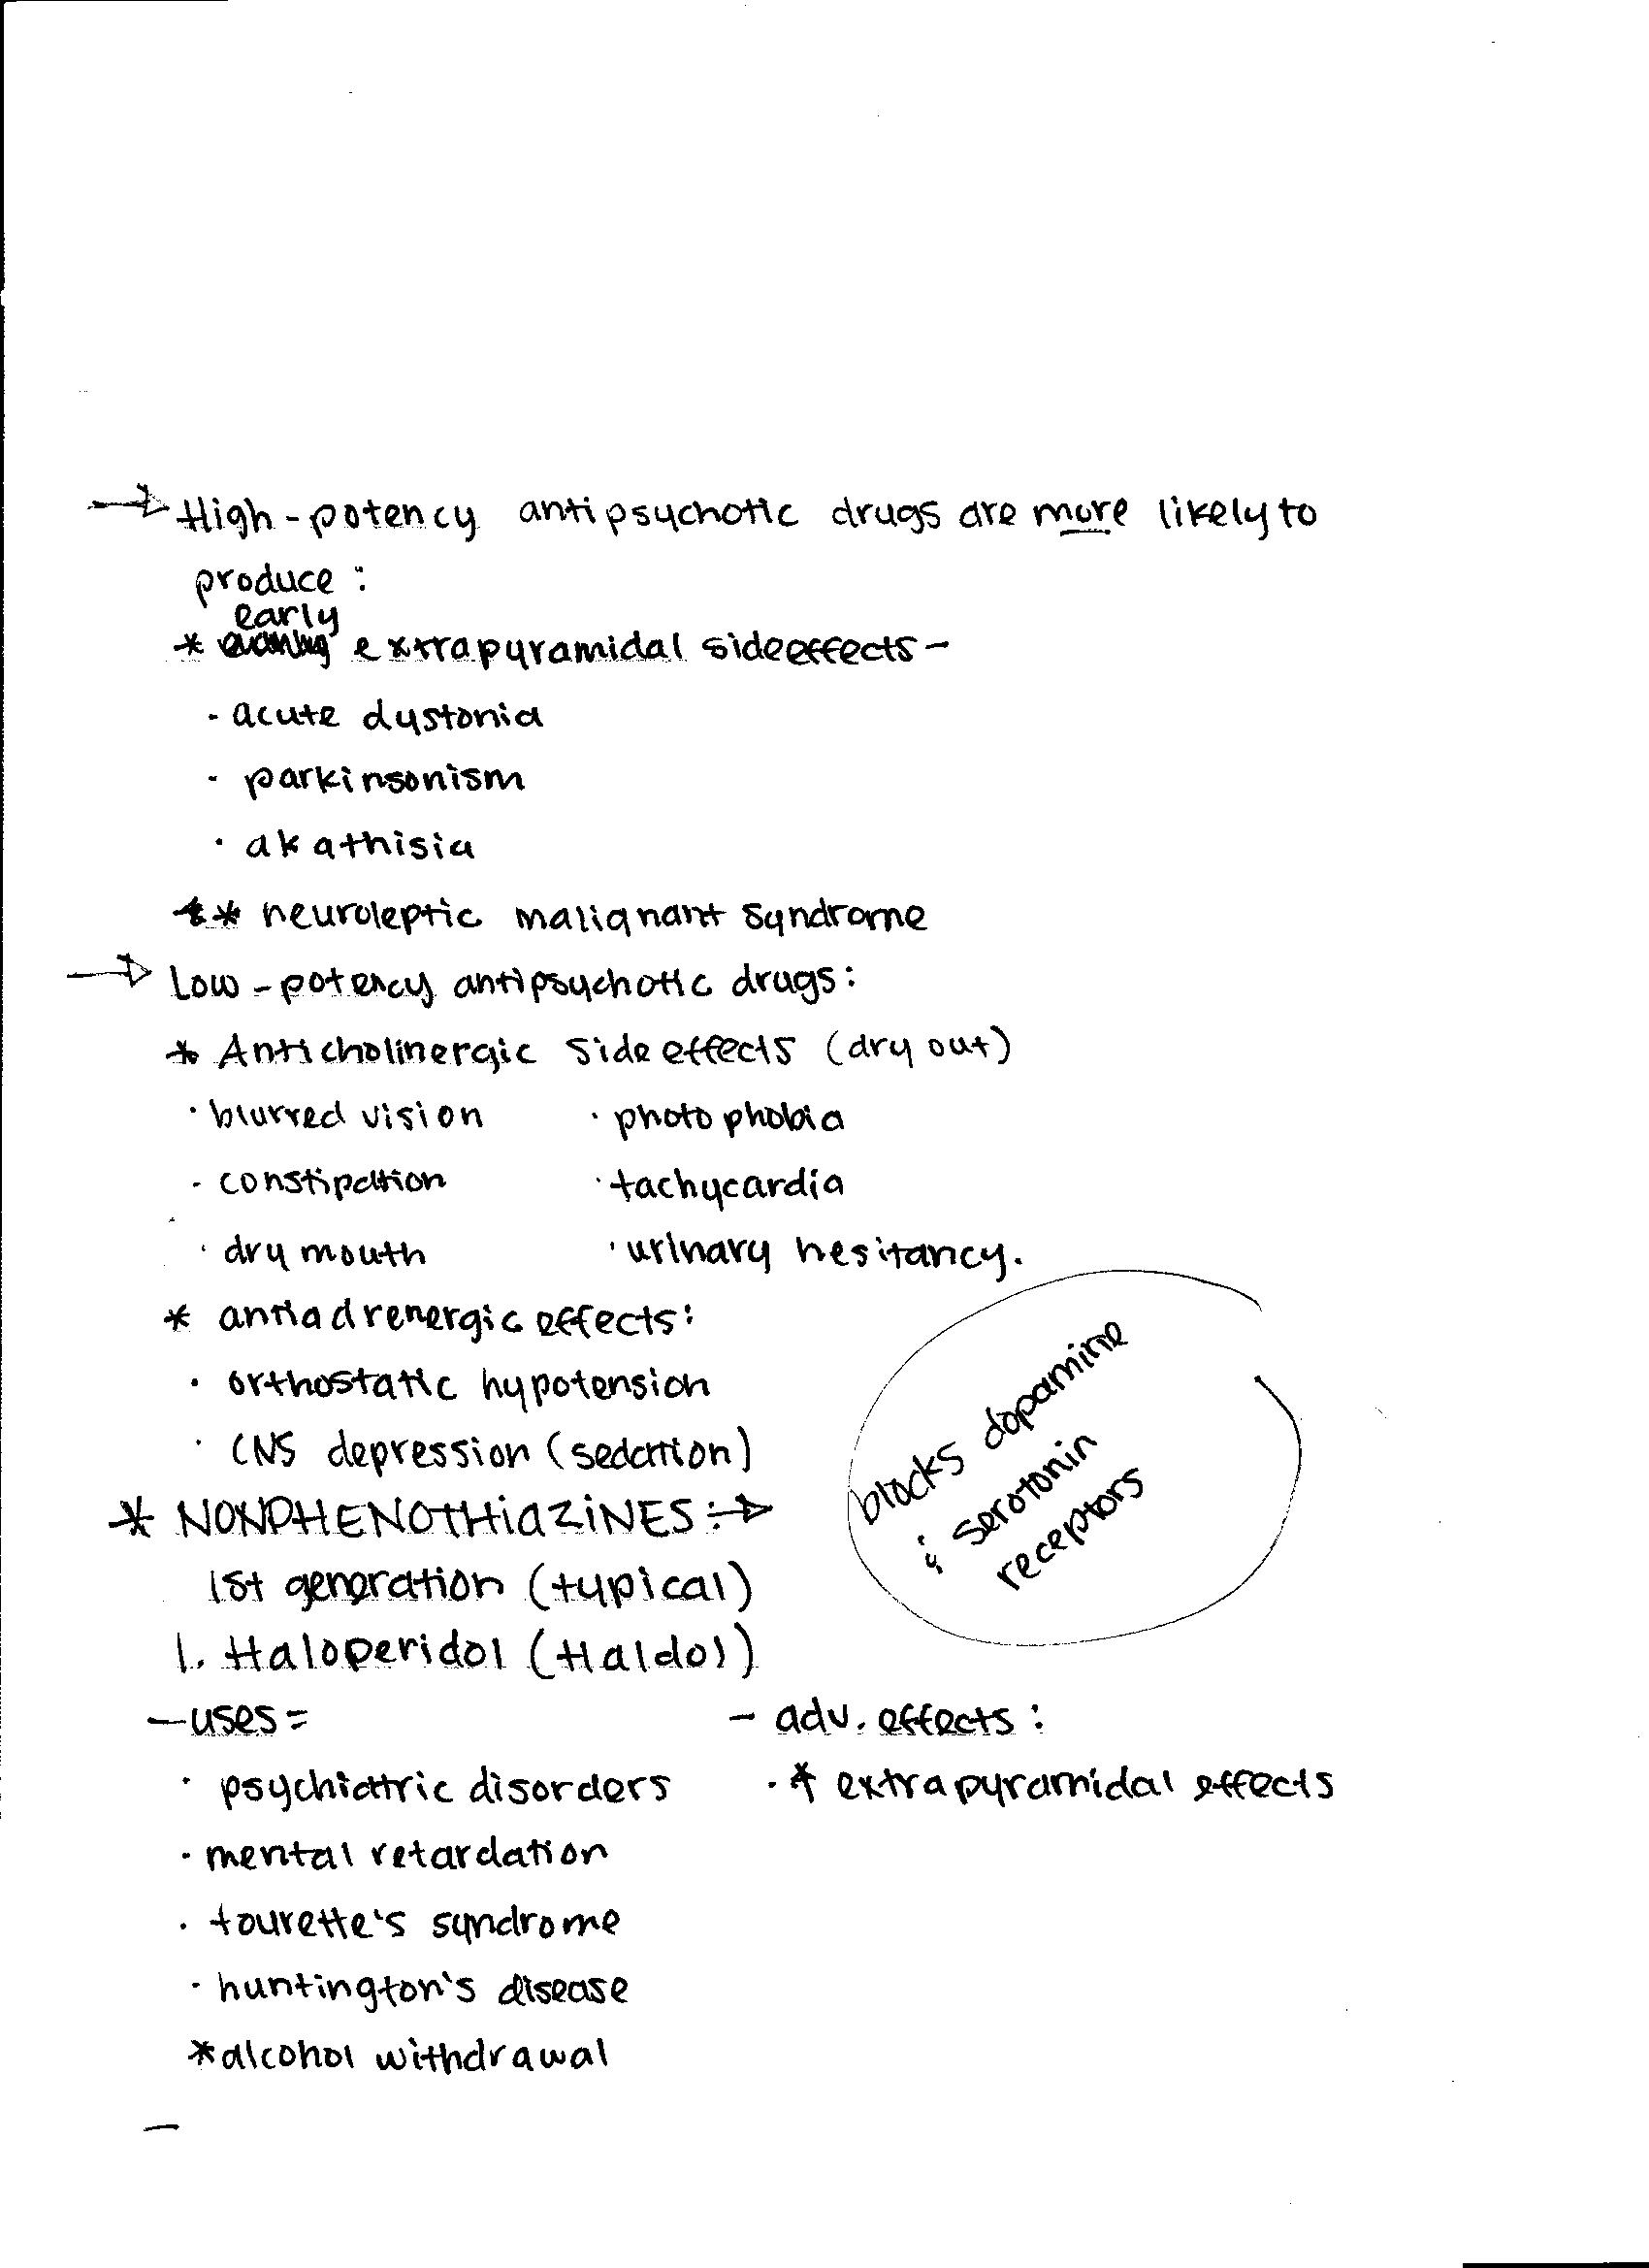 → High-potency antipsychotic drugs are more likely to
produce:
early
* extrapyramidal side effects -
· acute dystonia
· parkinsonism
· akathisia
** neuroleptic malignant syndrome
→ Low-potency antipsychotic drugs:
* Anticholinergic side effects (dry out)
· blurred vision · photophobia
· constipation · tachycardia
· dry mouth · urinary hesitancy.
* antiadrenergic effects:
· orthostatic hypotension
· CNS depression (sedation)
blocks dopamine
& serotonin
receptors
* NONPHENOTHiAZiNES: →
1st generation (typical)
1. Haloperidol (Haldol)
- uses = - adv. effects:
· psychiatric disorders · * extrapyramidal effects
· mental retardation
· tourette's syndrome
· huntington's disease
* alcohol withdrawal
-